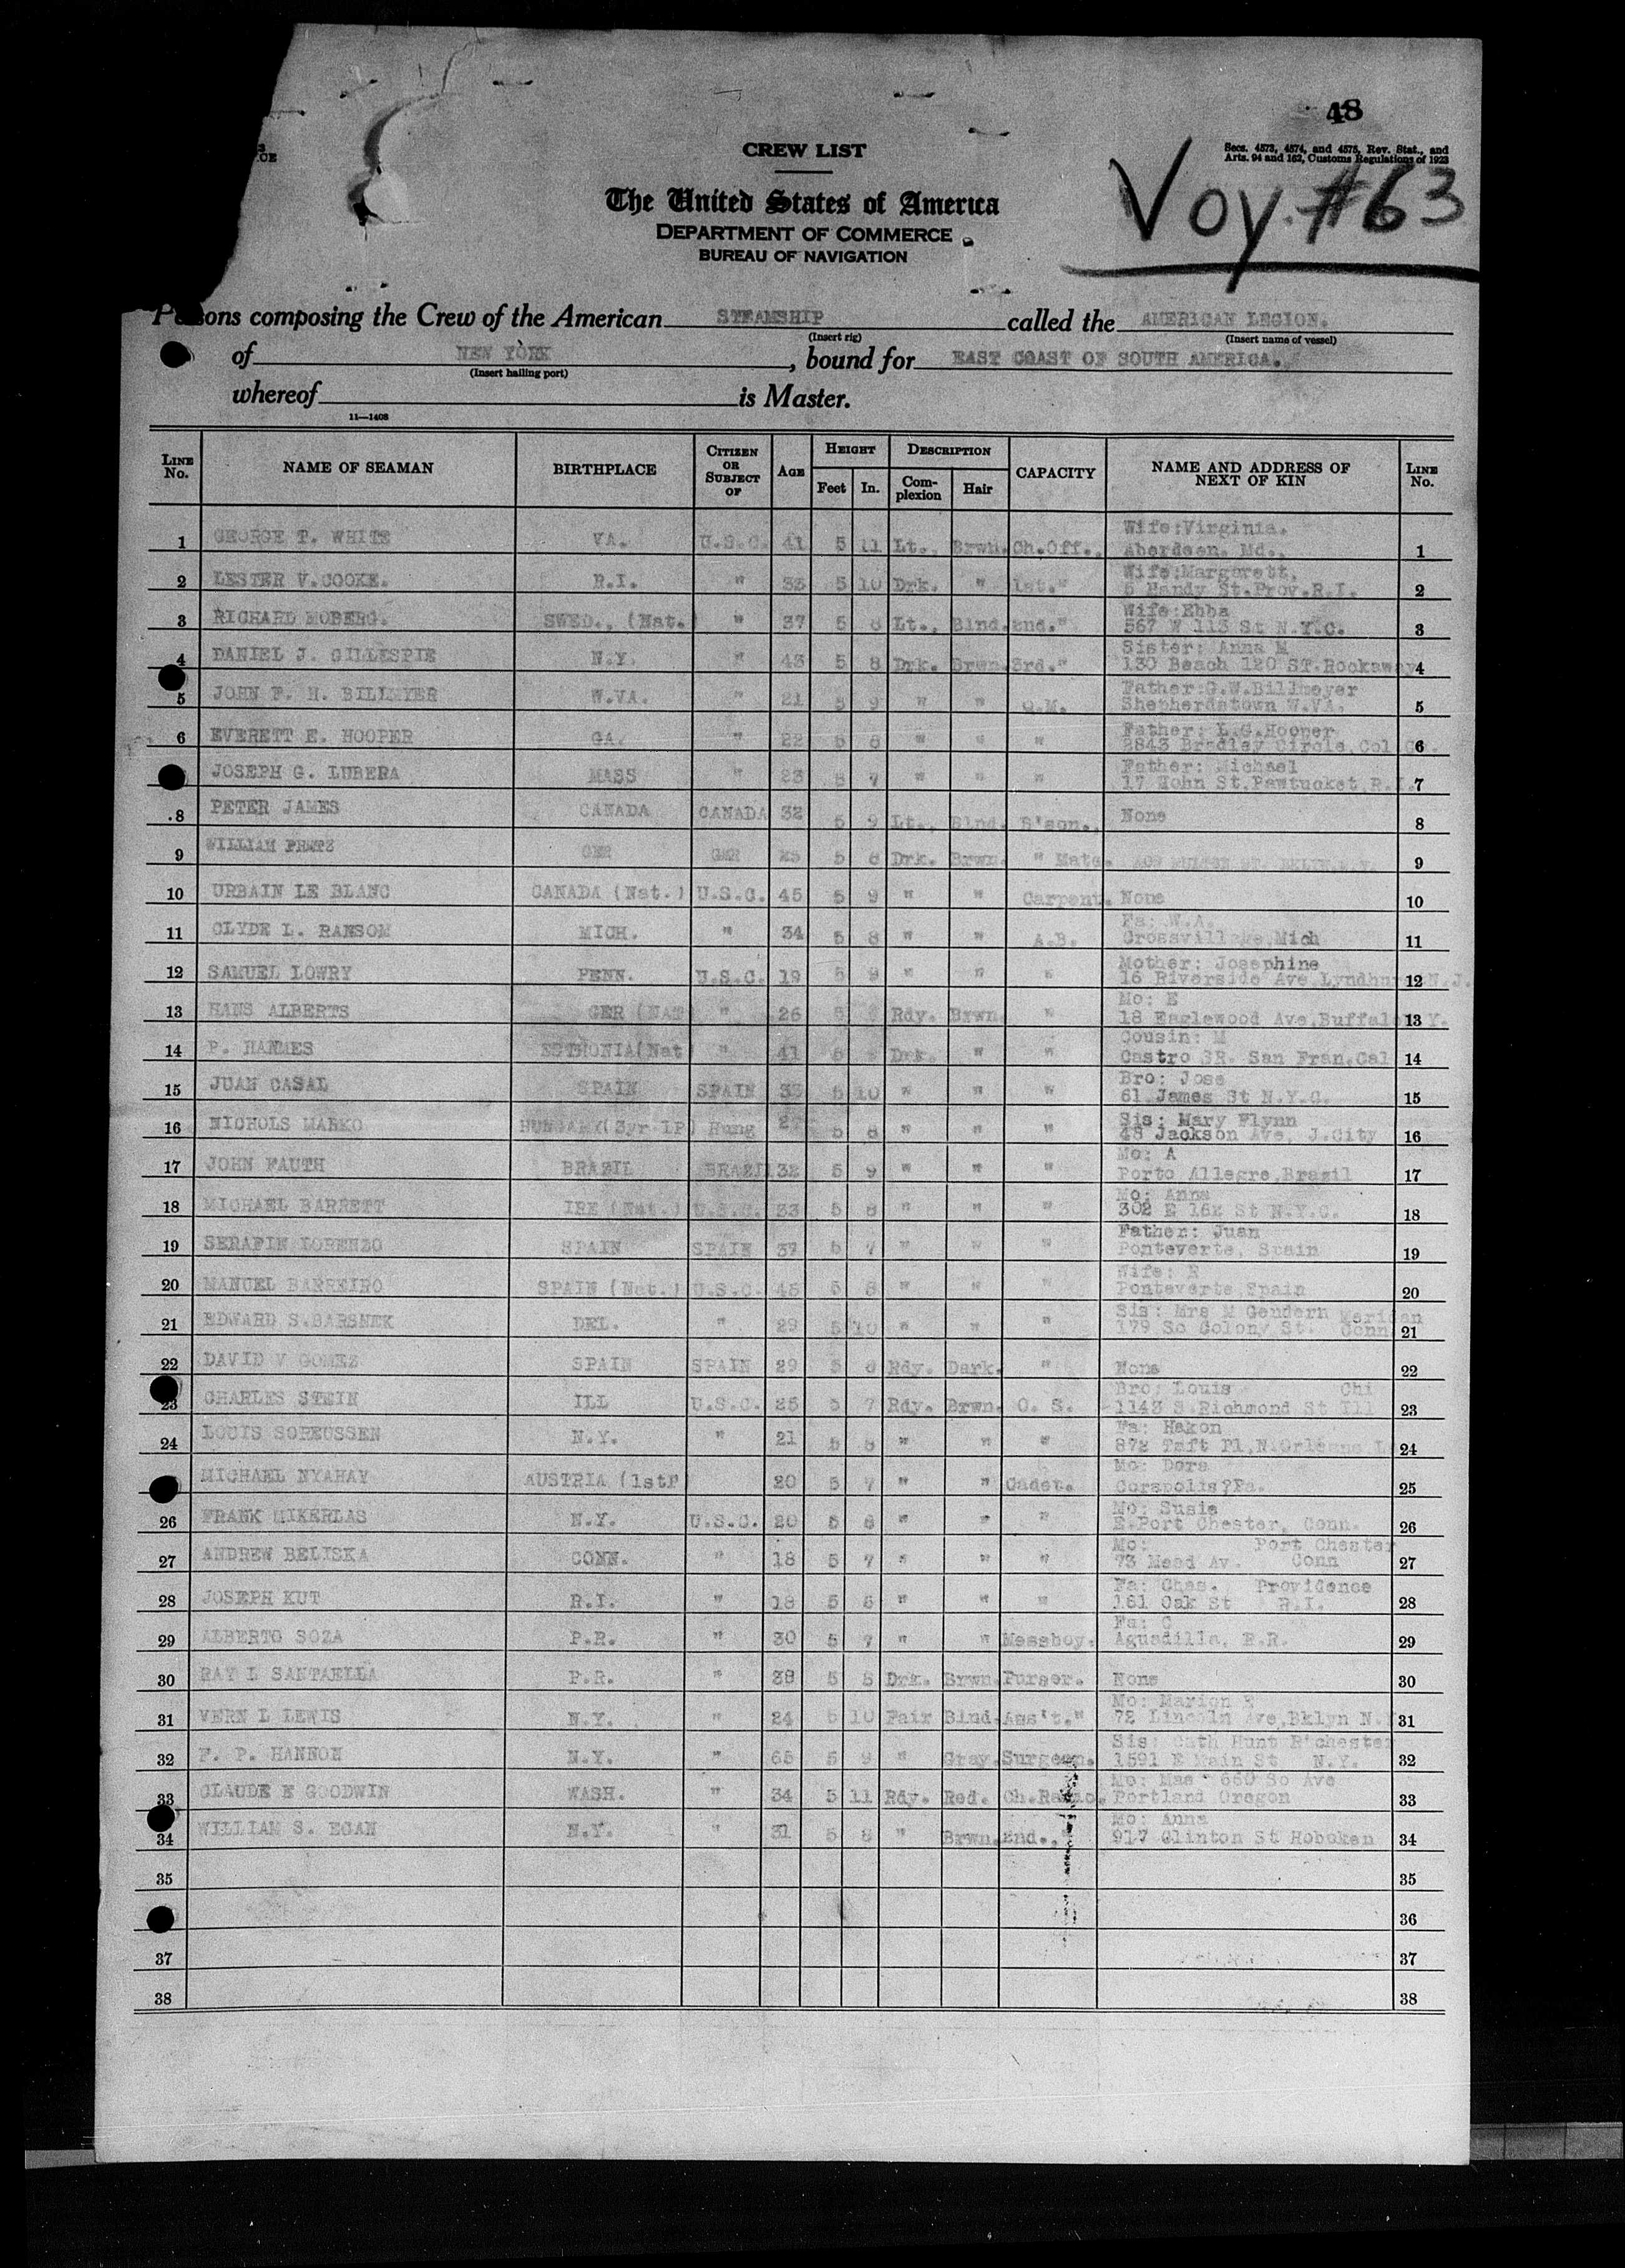 48
CREW LIST
Secs. 4573, 4574, and 4575, Rev. Stat., and
Arts. 94 and 162, Customs Regulations of 1923
Voy. #63
The United States of America
DEPARTMENT OF COMMERCE
BUREAU OF NAVIGATION
Persons composing the Crew of the American STEAMSHIP called the AMERICAN LEGION.
(Insert rig) (Insert name of vessel)
of NEW YORK, bound for EAST COAST OF SOUTH AMERICA.
(Insert hailing port)
whereof is Master.
11—1408
LINE No. NAME OF SEAMAN BIRTHPLACE CITIZEN OR SUBJECT OF AGE HEIGHT Feet In. DESCRIPTION Complexion Hair CAPACITY NAME AND ADDRESS OF NEXT OF KIN LINE No.
1 GEORGE P. WHITE VA. U.S.C. 41 5 11 Lt., Brwn. Ch.Off., Wife:Virginia. Aberdeen. Md., 1
2 LESTER V.COOKE. R.I. " 33 5 10 Drk. " 1st." Wife:Margarett, 5 Handy St.Prov.R.I. 2
3 RICHARD MOBERG. SWED., (Nat.) " 37 5 8 Lt., Blnd. 2nd." Wife:Ebba 567 W 113 St N.Y.C. 3
4 DANIEL J. GILLESPIE N.Y. " 43 5 8 Drk. Brwn. 3rd." Sister: Anna M 130 Beach 120 ST.Rockaway 4
5 JOHN F. H. BILLMYER W.VA. " 21 5 9 " " Q.M. Father:G.W.Billmeyer Shepherdstown W.VA. 5
6 EVERETT E. HOOPER GA. " 22 5 8 " " " Father: L.G.Hooper 2843 Bradley Circle,Col 6
JOSEPH G. LUBERA MASS " 23 5 7 " " " Father: Michael 17 Hohn St.Pawtucket R.I. 7
8 PETER JAMES CANADA CANADA 32 5 9 Lt., Blnd. B'son., None 8
9 WILLIAM GER GER 25 5 8 Drk. Brwn. " Mate. 9
10 URBAIN LE BLANC CANADA (Nat.) U.S.C. 45 5 9 " " Carpent. None 10
11 CLYDE L. RANSOM MICH. " 34 5 8 " " A.B. Fa: W.A. Mich 11
12 SAMUEL LOWRY PENN. U.S.C. 19 5 9 " " " Mother: Josephine 16 Riverside Ave Lyndhurst N.J. 12
13 HANS ALBERTS GER (NAT " 26 5 Rdy. Brwn. " Mo: E 18 Eaglewood Ave,Buffalo N.Y. 13
14 P. HANMES ESTHONIA(Nat " 41 5 Drk. " " Cousin: M Castro SR. San Fran,Cal 14
15 JUAN CASAL SPAIN SPAIN 33 5 10 " " " Bro: Jose 61 James St N.Y.C. 15
16 NICHOLS MARKO HUNGARY(3yr 1P) Hung 5 8 " " " Sis: Mary Flynn 48 Jackson Ave, J.City 16
17 JOHN FAUTH BRAZIL BRAZIL 32 5 9 " " " Mo: A Porto Allegre,Brazil 17
18 MICHAEL BARRETT IRE (Nat.) U.S.C. 33 5 8 " " " Mo: Anna 302 E 162 St N.Y.C. 18
19 SERAFIN LORENZO SPAIN SPAIN 37 5 7 " " " Father: Juan Ponteverte, Spain 19
20 MANUEL BARREIRO SPAIN (Nat.) U.S.C. 45 5 8 " " " Wife: R Ponteverte,Spain 20
21 EDWARD S.BARSNEK DEL. " 29 5 10 " " " Sis: Mrs M Gendern Meriden 179 So Colony St. Conn 21
22 DAVID V GOMEZ SPAIN SPAIN 29 5 8 Rdy. Dark. " None 22
23 CHARLES STEIN ILL U.S.C. 25 5 7 Rdy. Brwn. O. S. Bro: Louis Chi 1143 S.Richmond St Ill 23
24 LOUIS SOREUSSEN N.Y. " 21 5 8 " " " Fa: Hakon 872 Taft Pl,N.Orleans L 24
MICHAEL NYAHAY AUSTRIA (1stP 20 5 7 " " Cadet. Mo: Dora Coraopolis?Pa. 25
26 FRANK MIKERLAS N.Y. U.S.C. 20 5 8 " " " Mo: Susie E.Port Chester, Conn. 26
27 ANDREW BELISKA CONN. " 18 5 7 " " " Mo: Port Chester 73 Mead Av. Conn 27
28 JOSEPH KUT R.I. " 18 5 8 " " " Fa: Chas. Providence 161 Oak St R.I. 28
29 ALBERTO SOZA P.R. " 30 5 7 " " Messboy. Fa: C Aguadilla, P.R. 29
30 RAY L SANTAELLA P.R. " 38 5 8 Drk. Brwn. Purser. None 30
31 VERN L LEWIS N.Y. " 24 5 10 Fair Blnd. Ass't." Mo: Marion E 72 Lincoln Ave,Bklyn N.Y 31
32 F. P. HANNON N.Y. " 65 5 9 " Gray. Surgeon. Sis: Cath Hunt R'chester 1591 E Main St N.Y. 32
33 CLAUDE E GOODWIN WASH. " 34 5 11 Rdy. Red. Ch.Radio. Mo: Mae 660 So Ave Portland Oregon 33
34 WILLIAM S. EGAN N.Y. " 31 5 8 " Brwn. 2nd.," Mo: Anna 917 Clinton St Hoboken 34
35 35
36
37 37
38 38